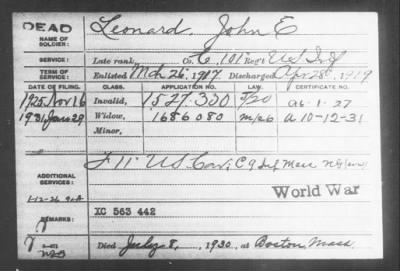 DEAD
NAME OF SOLDIER: Leonard, John E
SERVICE: Late rank, Co. C, 101 Reg't U S Inf
TERM OF SERVICE: Enlisted Mch 26, 1917 Discharged Apr 28, 1919
DATE OF FILING. CLASS. APPLICATION NO. LAW. CERTIFICATE NO.
1925 Nov 16 Invalid, 1527.300
1931 Jan 29 Widow, 1686080 A 10-12-31
Minor,
ADDITIONAL SERVICES: F 11 U.S. Cav; C 9 Inf Mass
World War
REMARKS: XC 563 442
Died July 8, 1930, at Boston, Mass.